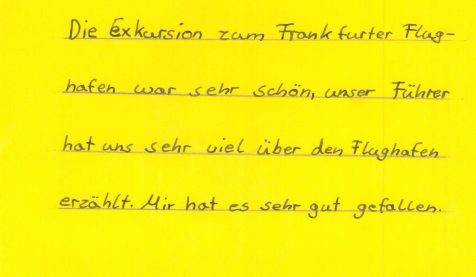 Die Exkursion zum Frankfurter Flug-
hafen war sehr schön, unser Führer
hat uns sehr viel über den Flughafen
erzählt. Mir hat es sehr gut gefallen.